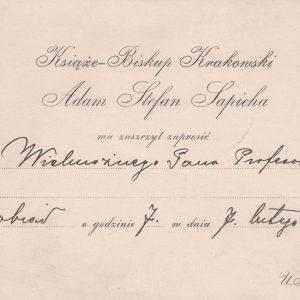 Książe-Biskup Krakowski
Adam Stefan Sapieha
ma zaszczyt zaprosić
Wielmożnego Pana Profeso
obiad o godzinie 7. w dniu 7. lutego